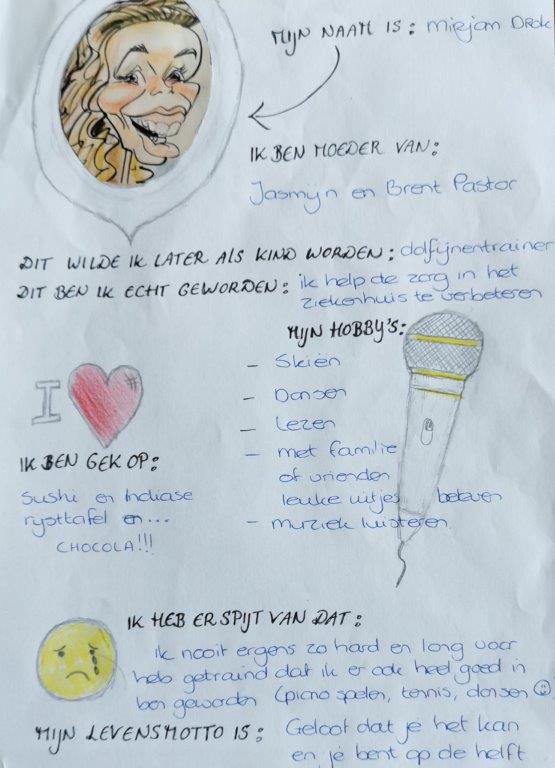 MIJN NAAM IS: Mirjam Drok
IK BEN MOEDER VAN:
Jasmijn en Brent Pastor
DIT WILDE IK LATER ALS KIND WORDEN: dolfijnentrainer
DIT BEN IK ECHT GEWORDEN: ik help de zorg in het
ziekenhuis te verbeteren
MIJN HOBBY'S:
- Skiën
- Dansen
- Lezen
- met familie
of vrienden
leuke uitjes beleven
- muziek luisteren
I
IK BEN GEK OP:
Sushi en Indiase
rijsttafel en...
CHOCOLA!!!
IK HEB ER SPIJT VAN DAT:
ik nooit ergens zo hard en lang voor
heb getraind dat ik er ook heel goed in
ben geworden (piano spelen, tennis, dansen
MIJN LEVENSMOTTO IS: Geloof dat je het kan
en je bent op de helft